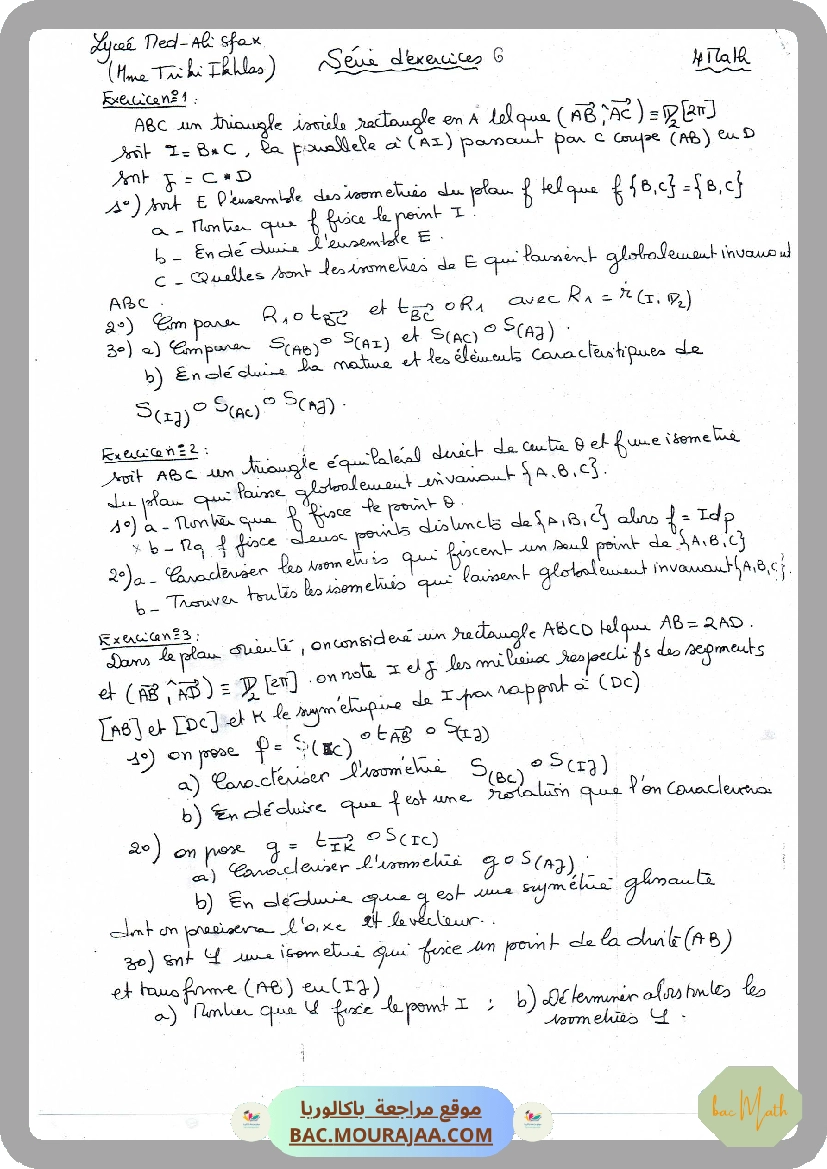 Lyceé Med-Ali Sfax
(Mme Triki Ikhlas)
Série d'exercices 6
4 Math
Exercice n°1 :
ABC un triangle isocèle rectangle en A tel que (AB ^, AC) ≡ π/2 [2π]
soit I = B*C, la parallele à (AI) passant par C coupe (AB) en D
soit J = C*D
1°) soit E l'ensemble des isometries du plan f tel que f{B,C} = {B,C}
a - Montrer que f fixe le point I.
b - En déduire l'ensemble E.
c - Quelles sont les isometries de E qui laissent globalement invariant
ABC.
2°) Comparer R₁ o t BC et t BC o R₁ avec R₁ = r (I, π/2)
3°) a) Comparer S(AB) o S(AI) et S(AC) o S(AJ).
b) En déduire la nature et les éléments caractéristiques de
S(IJ) o S(AC) o S(AJ).
Exercice n°2 :
soit ABC un triangle équilatéral direct de centre O et f une isometrie
du plan qui laisse globalement invariant {A, B, C}.
1°) a - Montrer que f fixe le point O.
x b - Mq f fixe deux points distincts de {A, B, C} alors f = Idp
2°) a - Caractériser les isometries qui fixent un seul point de {A, B, C}
b - Trouver toutes les isometries qui laissent globalement invariant {A, B, C}.
Exercice n°3 :
Dans le plan orienté, on consideré un rectangle ABCD tel que AB = 2AD.
et (AB ^, AD) ≡ π/2 [2π]. on note I et J les milieux respectifs des segments
[AB] et [DC] et K le symétrique de I par rapport à (DC)
1°) on pose f = S(IC) o t AB o S(IJ)
a) Caractériser l'isométrie S(BC) o S(IJ)
b) En déduire que f est une rotation que l'on caracterisera
2°) on pose g = t IK o S(IC)
a) Caracteriser l'isometrie g o S(AJ).
b) En déduire que g est une symétrie glissante
dont on precisera l'axe et le vecteur..
3°) soit φ une isometrie qui fixe un point de la droite (AB)
et transforme (AB) en (IJ)
a) Montrer que φ fixe le point I ; b) Déterminer alors toutes les
isometries φ.
موقع مراجعة باكالوريا
BAC.MOURAJAA.COM
bac Math